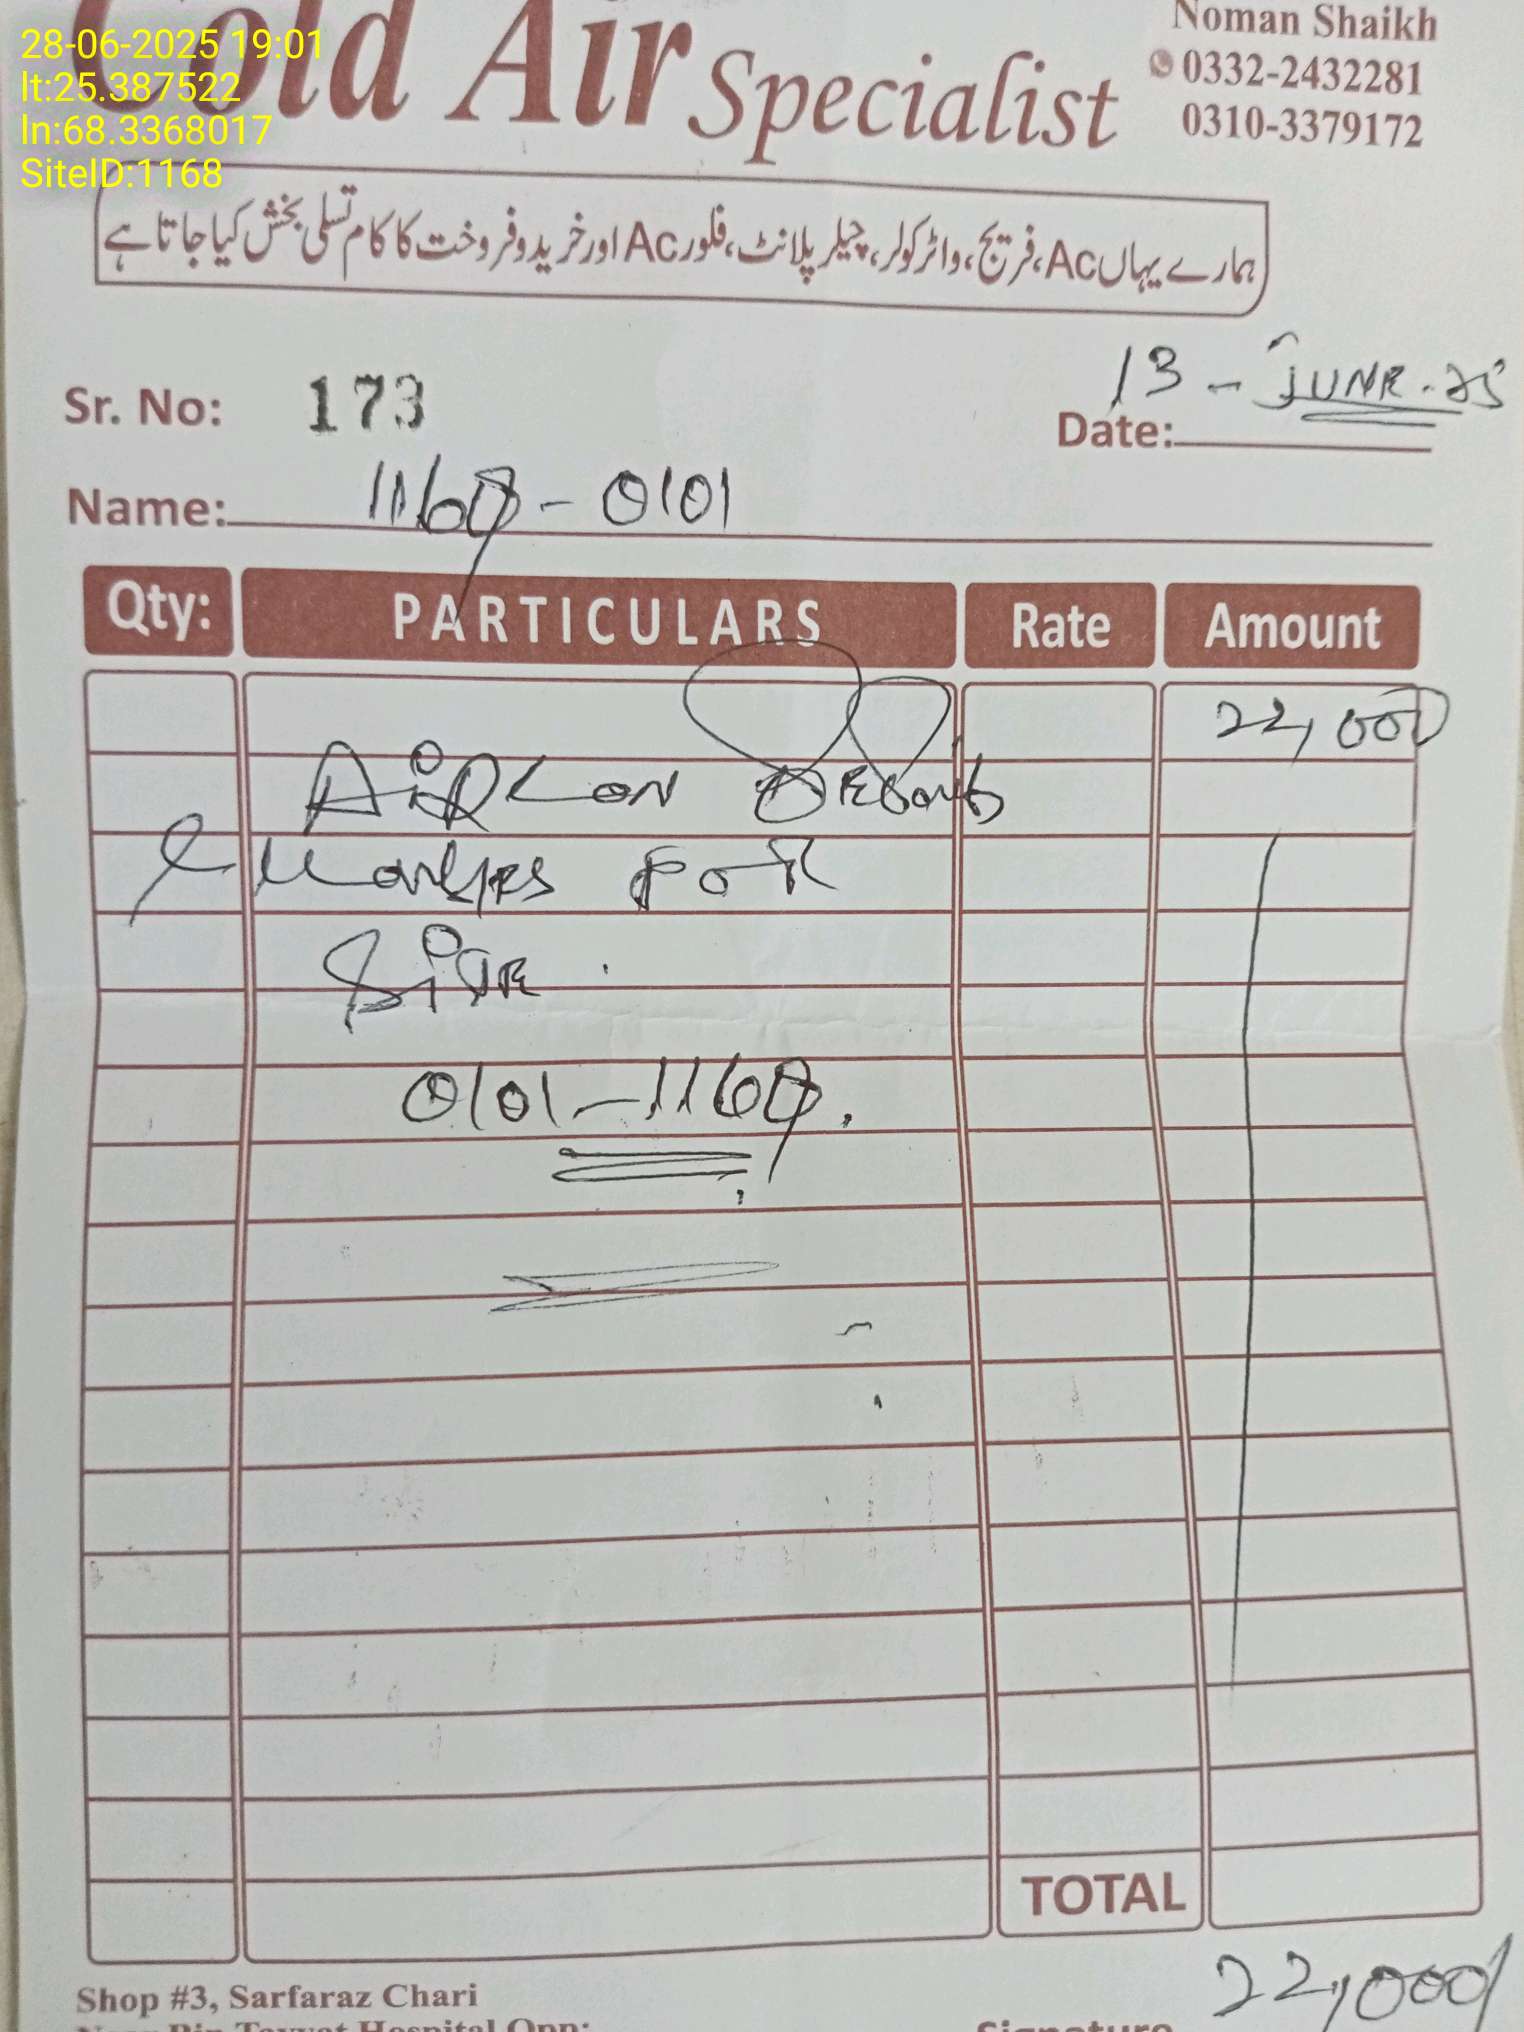 28-06-2025 19:01
lt:25.387522
ln:68.3368017
SiteID:1168
Cold Air Specialist
Noman Shaikh
0332-2432281
0310-3379172
ہمارے یہاں Ac، فریج، واٹر کولر، چیلر پلانٹ، فلور Ac اور خرید و فروخت کا کام تسلی بخش کیا جاتا ہے
Sr. No: 173
13 - JUNE - 25
Date:
Name: 1168 - 0101
Qty: PARTICULARS Rate Amount
22,000
AiRCon
for
SiTE
0101 - 1168.
TOTAL
22,000/
Shop #3, Sarfaraz Chari
Near Bin Tayyat Hospital Opp:
Signature